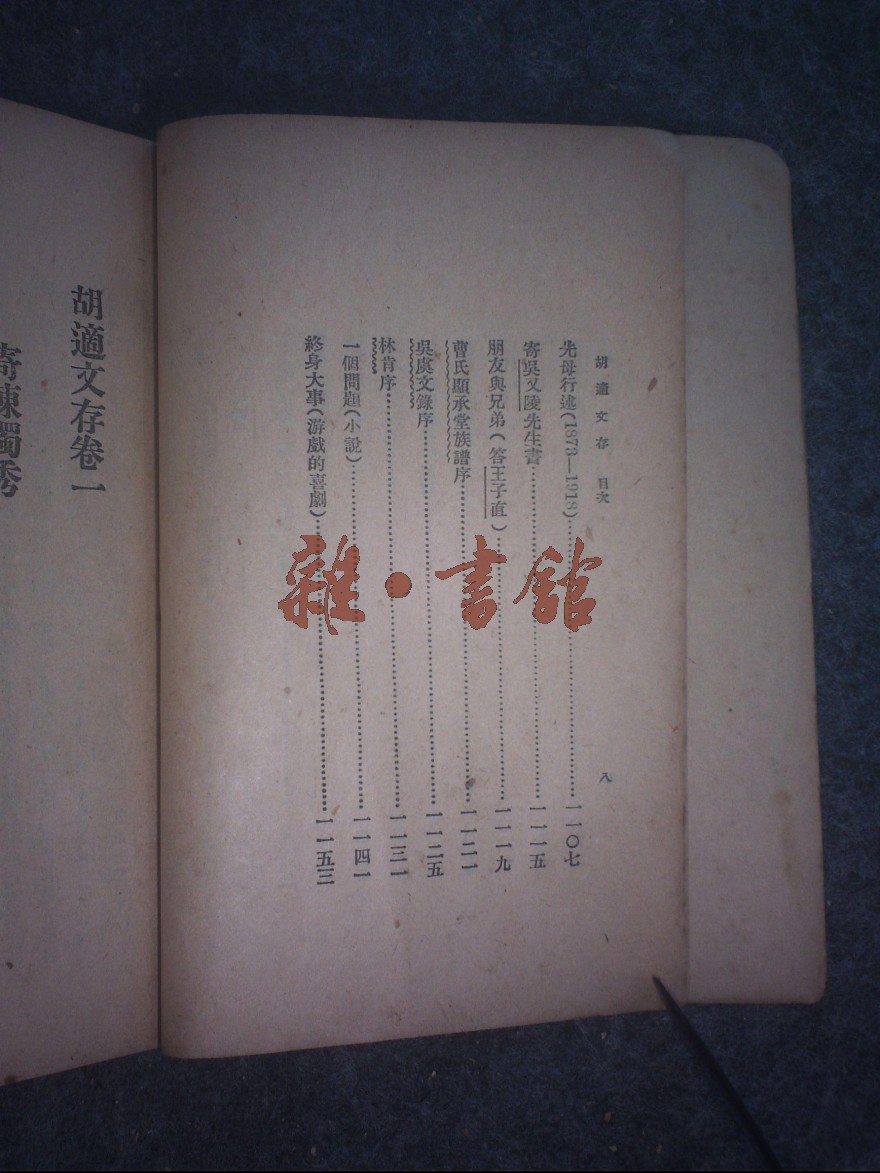 胡適文存 目次 八
先母行述(1873—1918)……一一〇七
寄吳又陵先生書……一一一五
朋友與兄弟(答王子直)……一一一九
曹氏顯承堂族譜序……一一二一
吳虞文錄序……一一二五
林肯序……一一三一
一個問題(小說)……一一四一
終身大事(游戲的喜劇)……一一五三
雜·書館
胡適文存卷一
寄陳獨秀